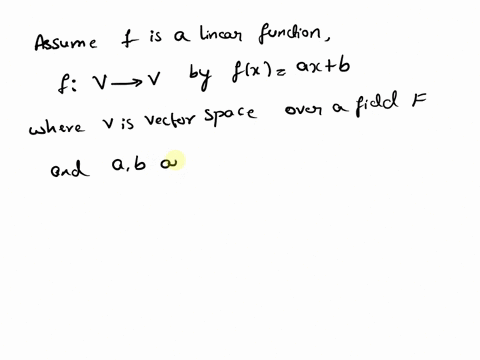 Assume f is a linear function,
f: V → V by f(x) = ax+b
where V is vector space over a field F
and a,b a